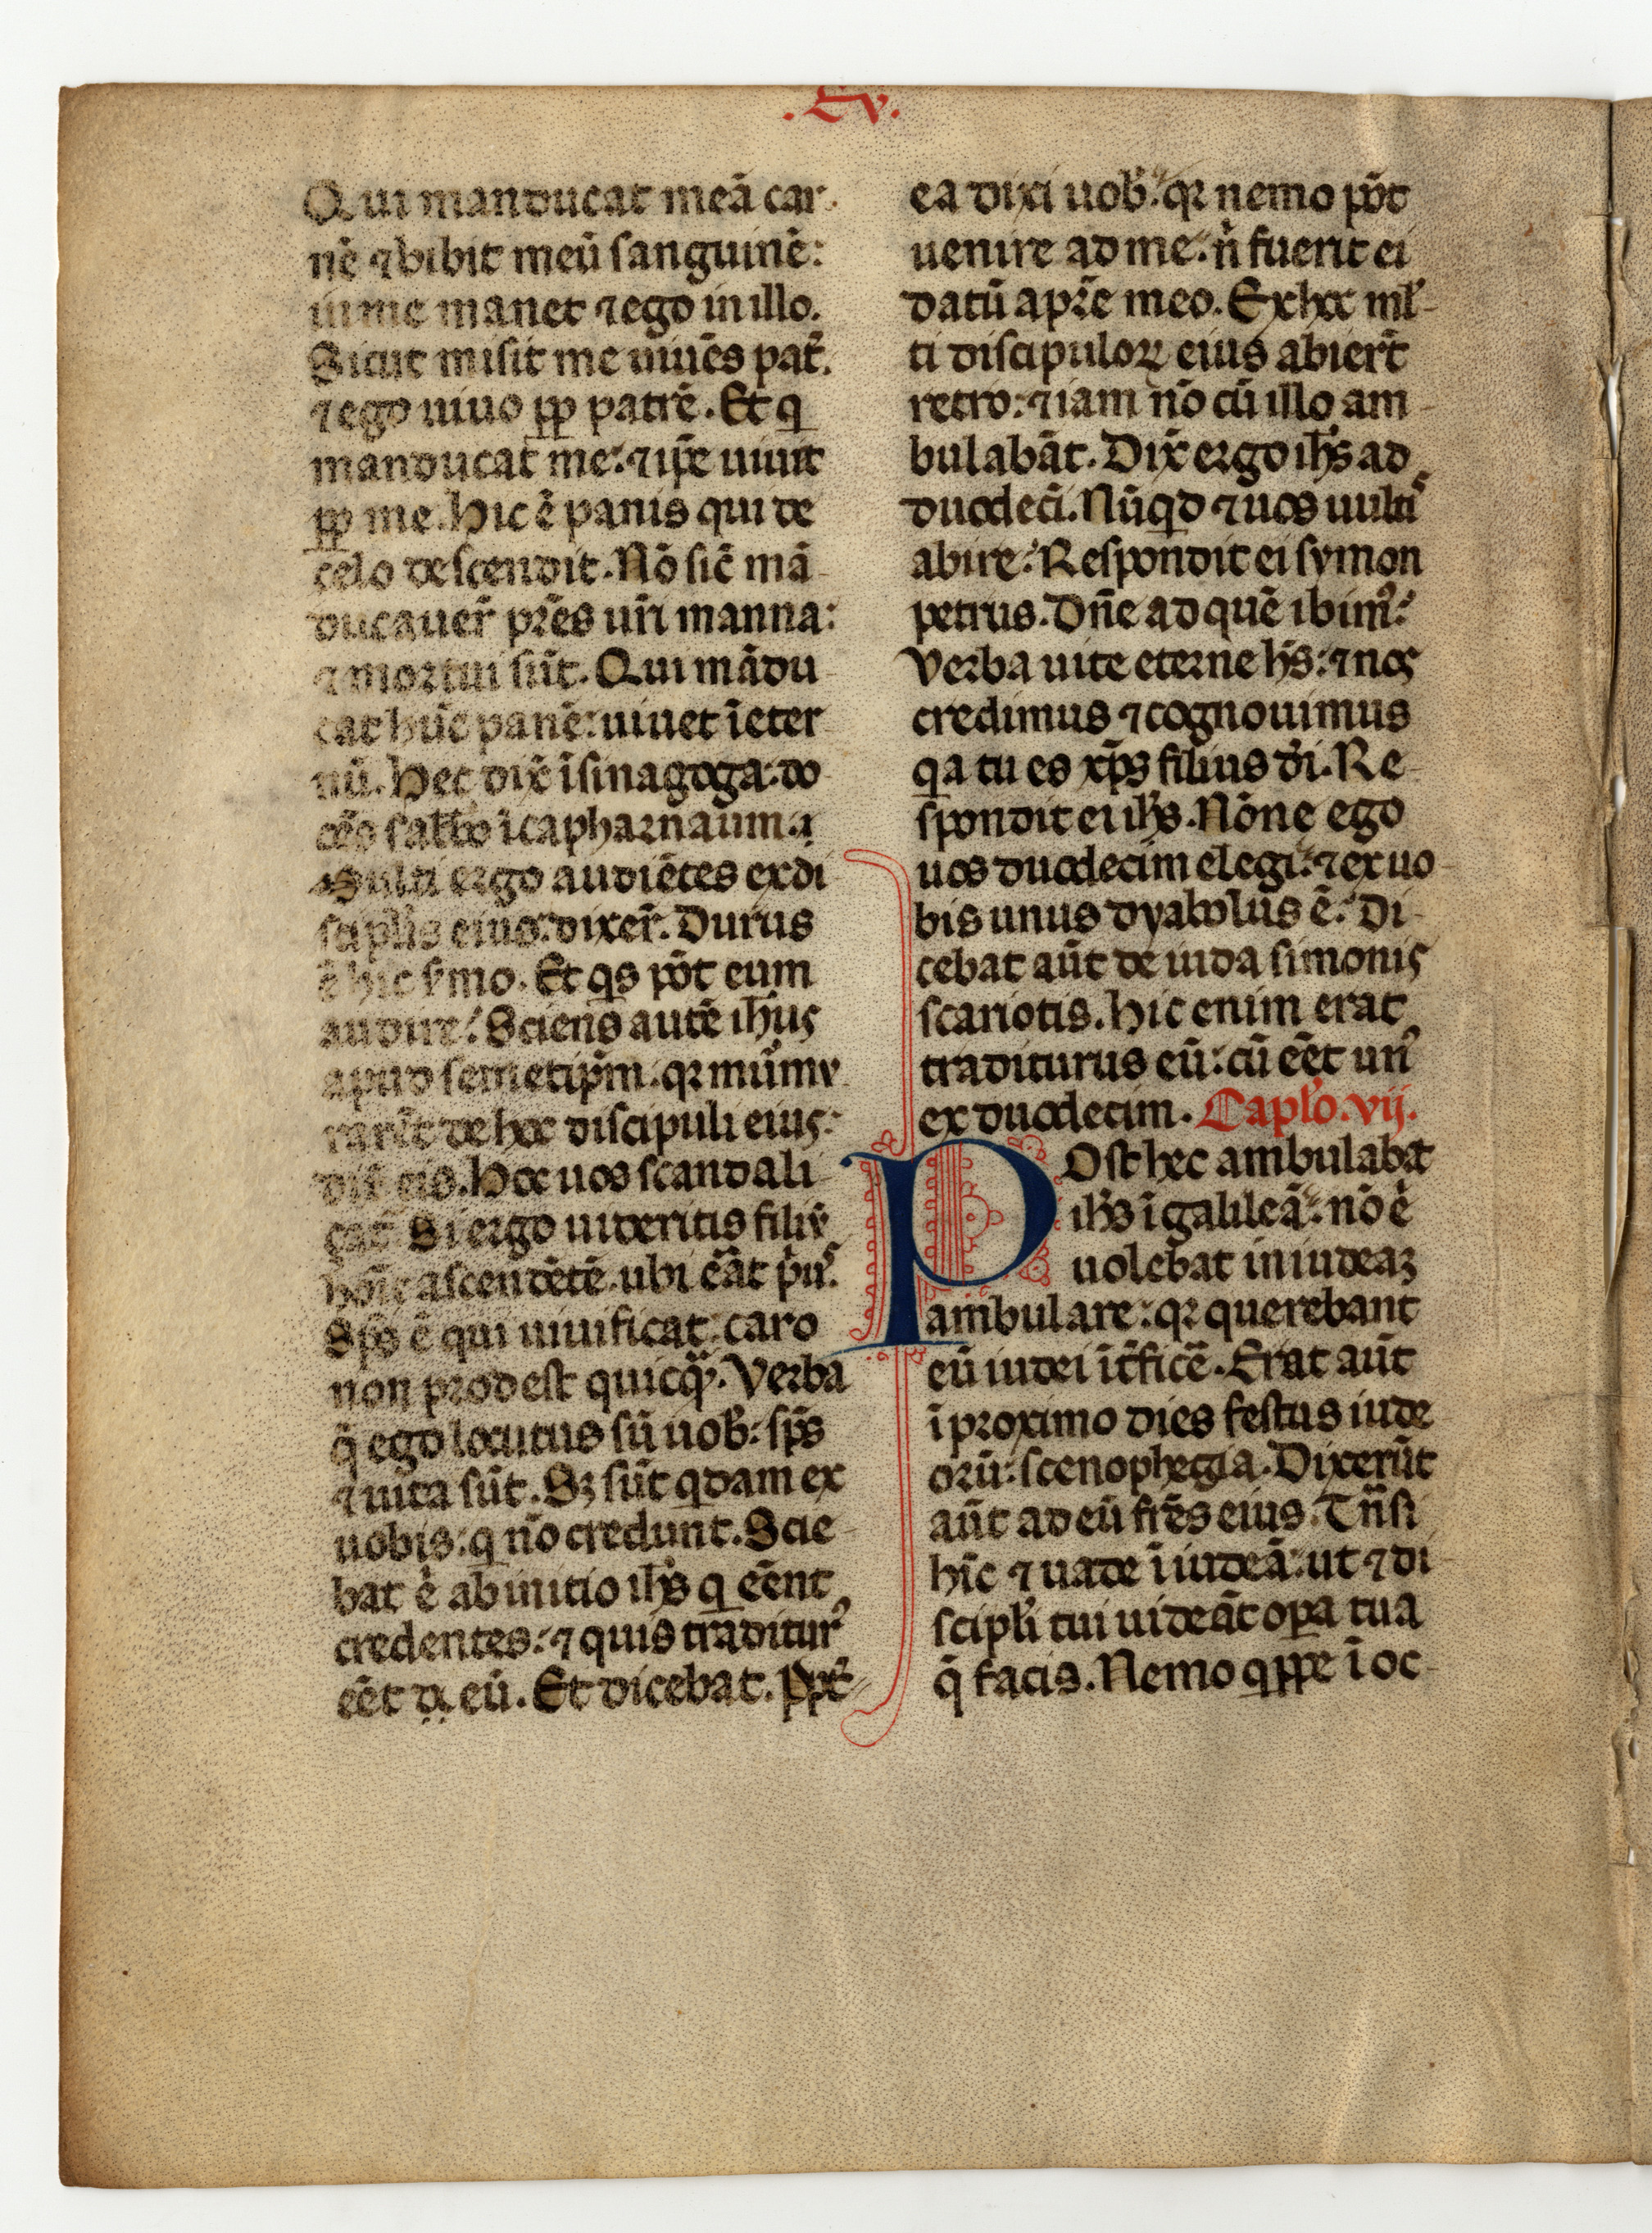 .Ev.
Qui manducat meā car
nē ⁊ bibit meū sanguinē:
in me manet ⁊ ego in illo.
Sicut misit me uiuēs pat̄.
⁊ ego uiuo ꝓp patrē. Et q
manducat me: ⁊ ip̄e uiuit
ꝓp me. Hic ē panis qui de
celo descendit. Nō sic̄ mā
ducauer̄ pr̄es ur̄i manna:
⁊ mortui sūt. Qui mādu
cat hūc panē: uiuet īeter
nū. Hec dix̄ ī sinagoga: do
cēs sabb̄o ī capharnaum.
Multi ergo audiētes ex di
scipl̄is eius: dixer̄. Durus
ē hic s̄mo. Et q̇s pōt eum
audire? Sciens autē ih̄us
apud semetip̄m. qꝛ mūmu
rarēt de hoc discipuli eius:
dix̄ eis. Hoc uos scandali
çat̄ Si ergo uideritis filiū
hoīs ascendētē. ubi ēāt pͥuˢ.
Sp̄s ē qui uiuificat: caro
non prodest quicq̄. Verba
q̄ ego locutus sū uob̄: sp̄s
⁊ uita sūt. Sꝫ sūt qdam ex
uobis: q nō credunt. Scie
bat ē ab initio ih̄s q ēēnt
credentes: ⁊ quis traditur᾿
ēēt eū. Et dicebat. ꝓpt̄
ea dixi uob̄: qꝛ nemo pōt
uenire ad me: n̄ fuerit ei
datū a pr̄e meo. Ex hoc ml̄
ti discipuloꝝ eius abier̄t
retro: ⁊ iam nō cū illo am
bulabāt. Dix̄ ergo ih̄s ad
duodeci̅. Nūqd ⁊ uos uultiˢ
abire? Respondit ei symon
petrus. Dn̄e ad quē ibim᾿?
Verba uite eterne h̄s: ⁊ nos
credimus ⁊ cognouimus
qa tu es xp̄s filius dī. Re
spondit ei ih̄s. Nōne ego
uos duodecim elegi: ⁊ ex uo
bis unus dyabolus ē? Di
cebat aūt de iuda simonis
scariotis. Hic enim erat
traditurus eū: cū ēēt un᾿
ex duodecim. Capl̄o. vij.
Post hec ambulabat
ih̄s ī galileā: nō ē
uolebat in iudeaꝫ
ambulare: qꝛ querebant
eū iudei īt̄ficē. Erat aūt
ī proximo dies festus iude
orū: scenophegia. Dixerūt
aūt ad eū fr̄es eius. Tn̄si
hīc ⁊ uade ī iudeā: ut ⁊ di
scipl̄i tui uideāt oꝑa tua
q̄ facis. Nemo qppe ī oc